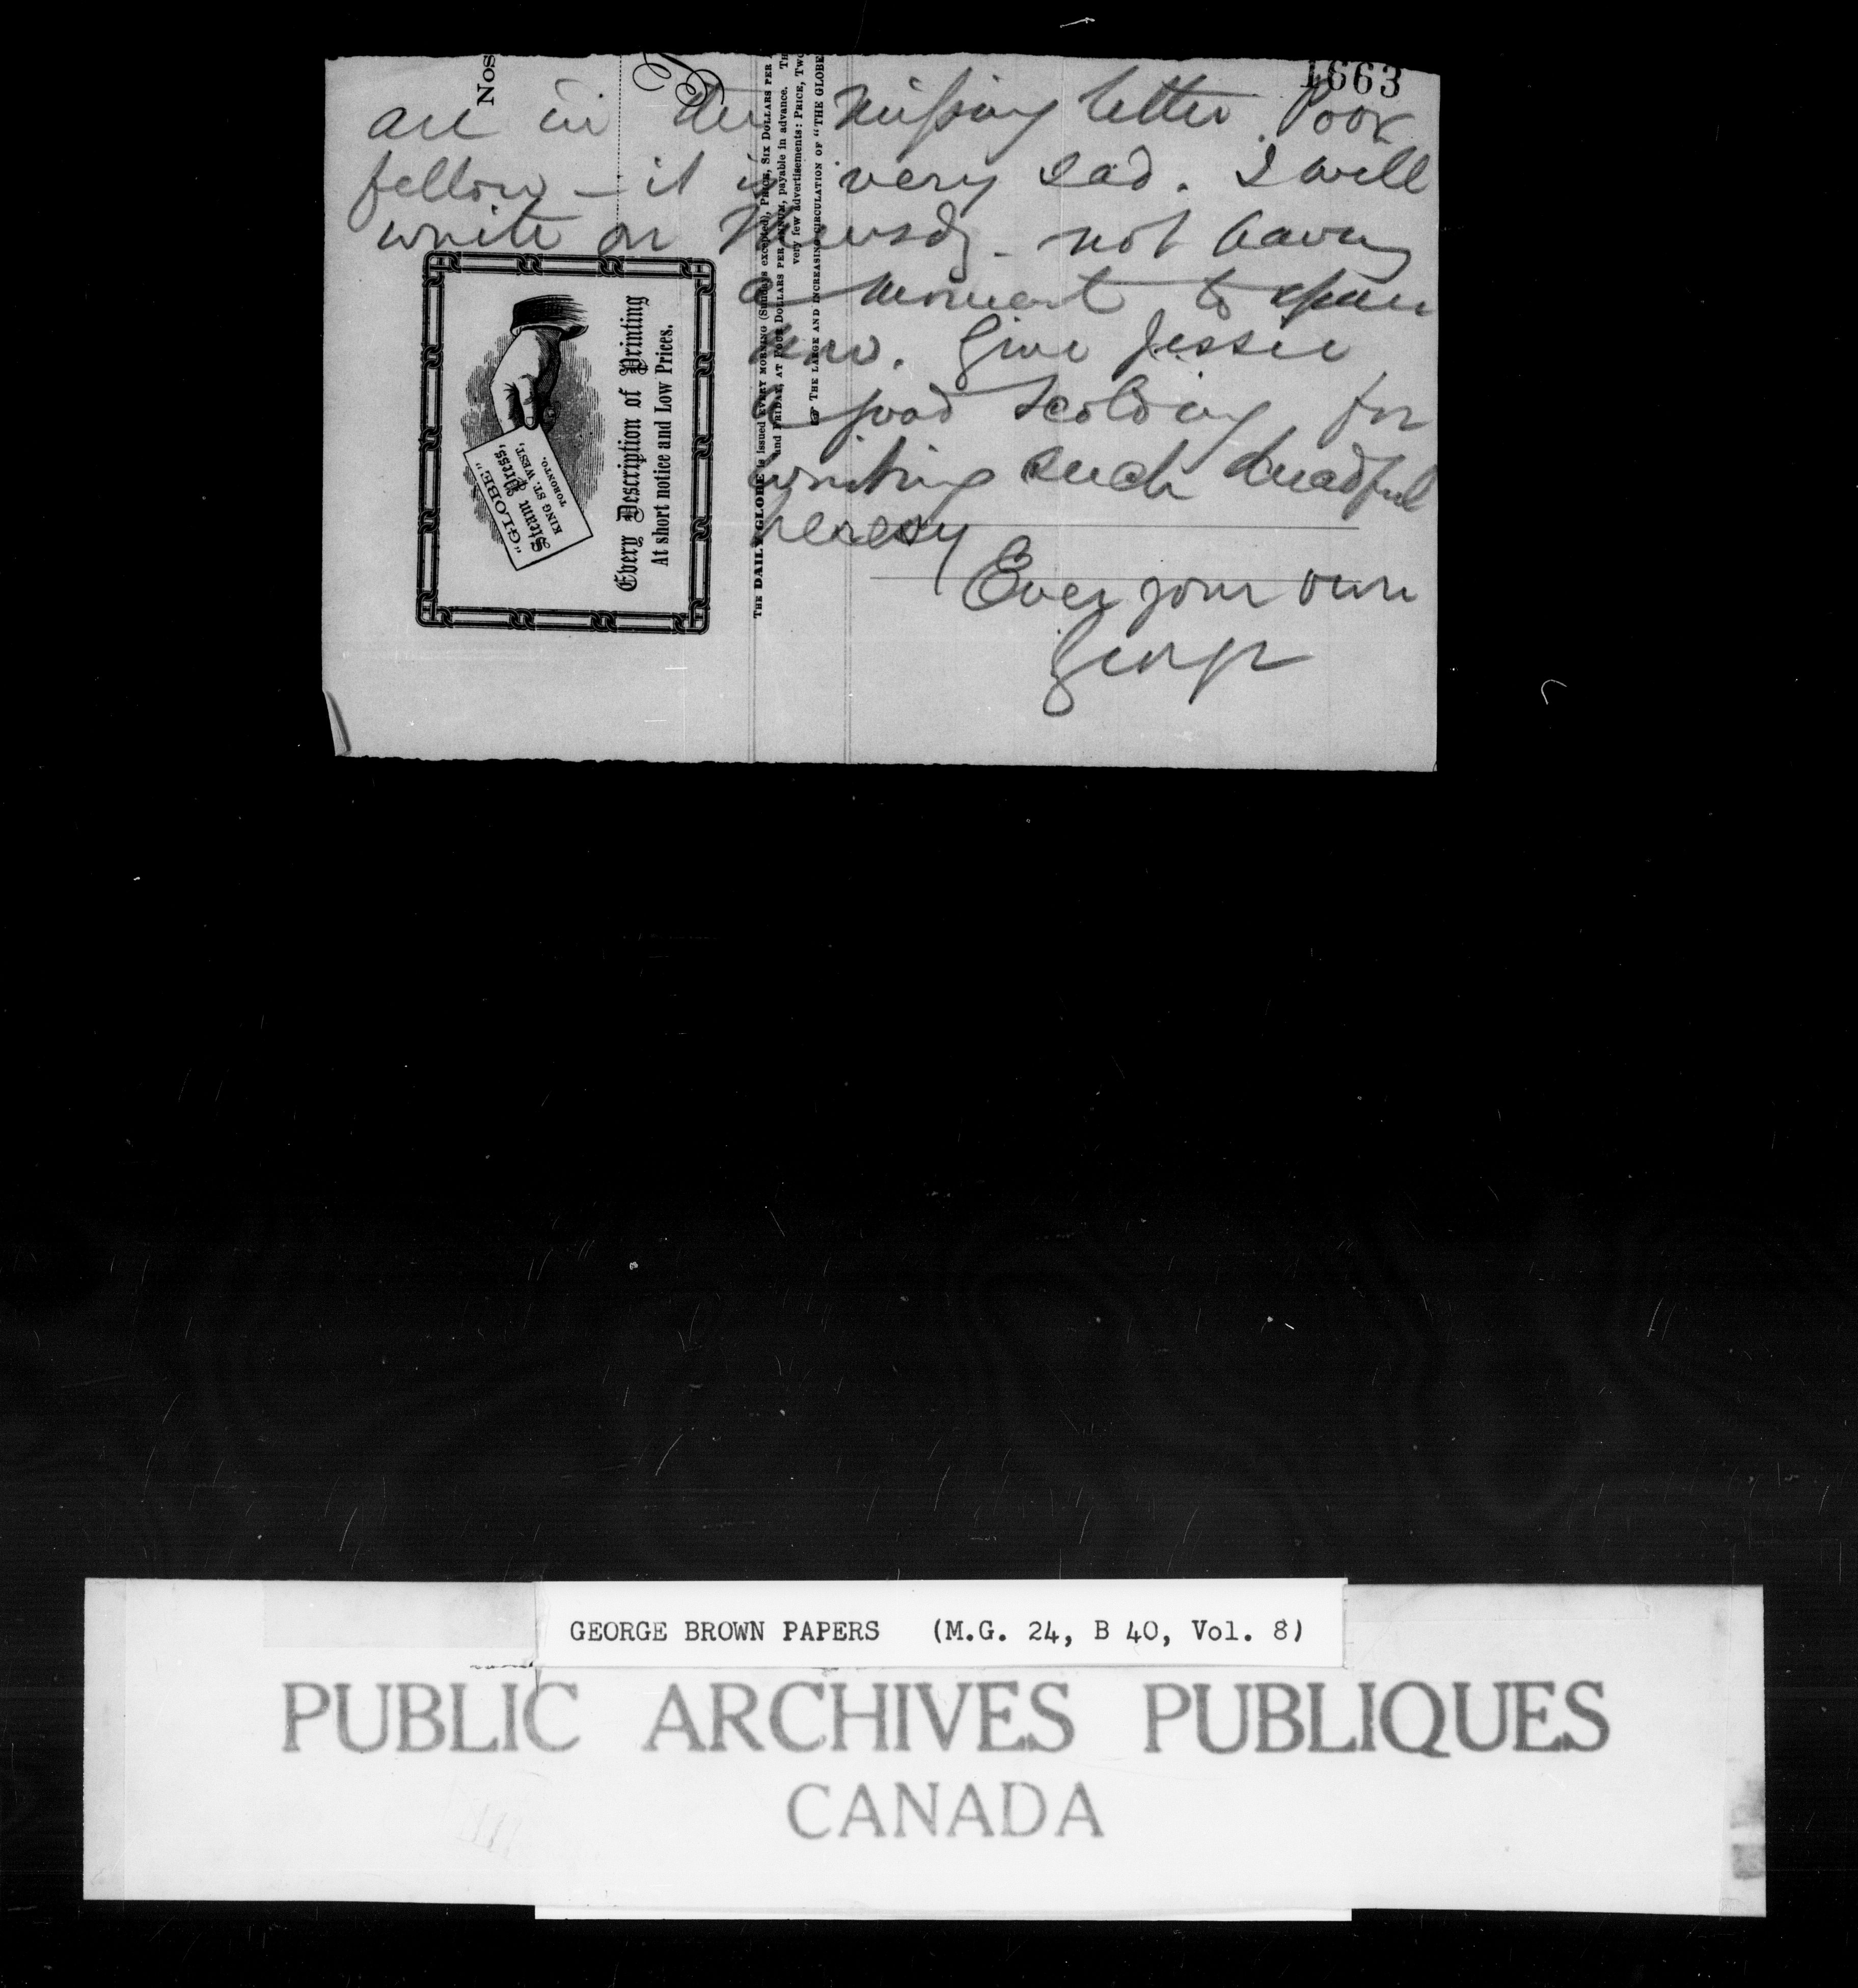 1663
are in the missing letter. Poor
fellow – it is very sad. I will
write on Thursdy. not having
a moment to spare
now. Give Jessie
a good scolding for
writing such dreadful
heresy
Ever your own
George
Nos
"GLOBE"
Steam Press,
KING ST. WEST,
TORONTO.
Every Description of Printing
At short notice and Low Prices.
THE DAILY GLOBE is issued EVERY MORNING (Sundays excepted), PRICE, SIX DOLLARS PER
and FRIDAY, AT FOUR DOLLARS PER ANNUM, payable in advance.
very few advertisements: PRICE, TWO
☞ THE LARGE AND INCREASING CIRCULATION OF "THE GLOBE
GEORGE BROWN PAPERS (M.G. 24, B 40, Vol. 8)
PUBLIC ARCHIVES PUBLIQUES
CANADA